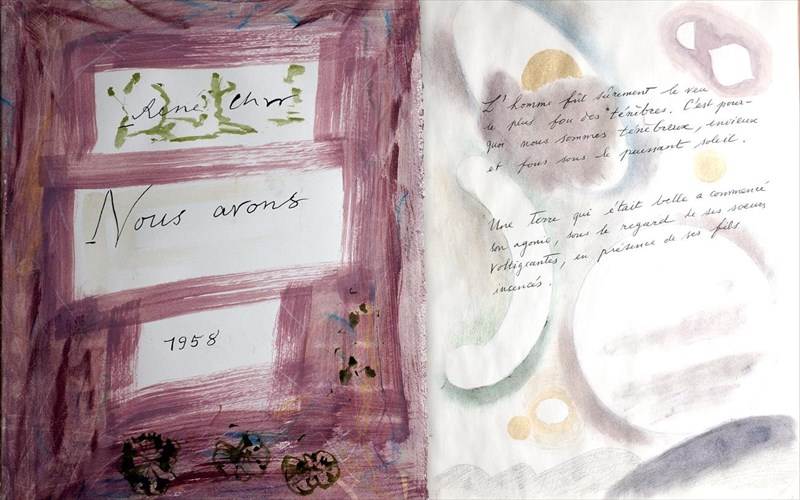 René Char
Nous avons
1958
L'homme fût sûrement le veu
le plus fou des ténèbres. C'est pour-
quoi nous sommes ténébreux, envieux
et fous sous le puissant soleil.
Une Terre qui était belle a commencé
son agonie, sous le regard de ses soeurs
voltigeantes, en présence de ses fils
incencés.